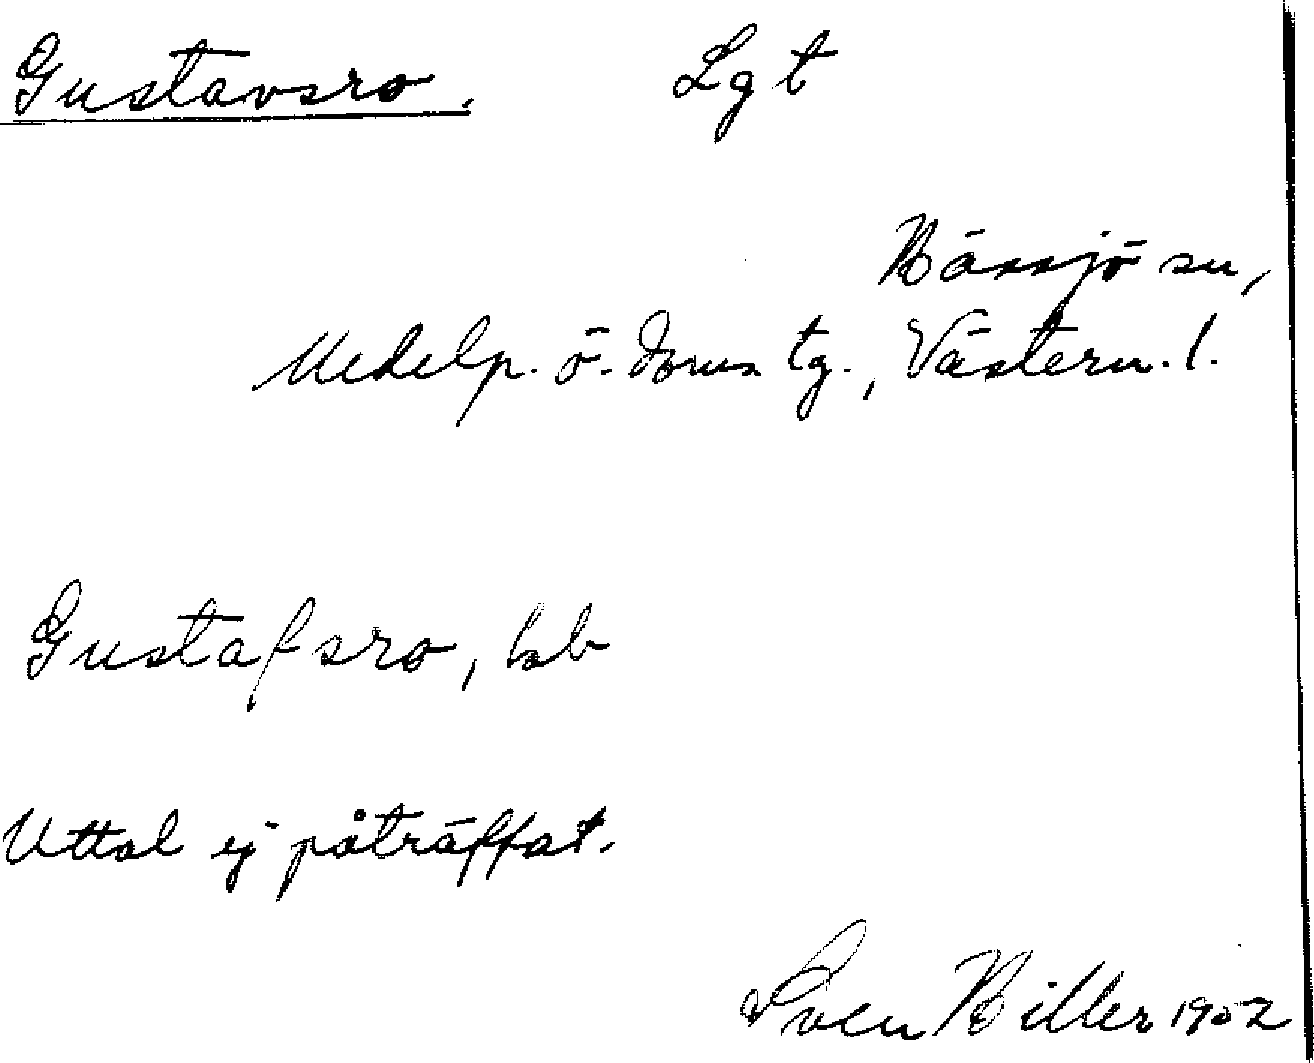 Gustavsro. Lgt
Hässjö sn,
Medelp. ö. doms tg., Västern. l.
Gustafsro, lsb
Uttal ej påträffat.
Sven Biller 1952